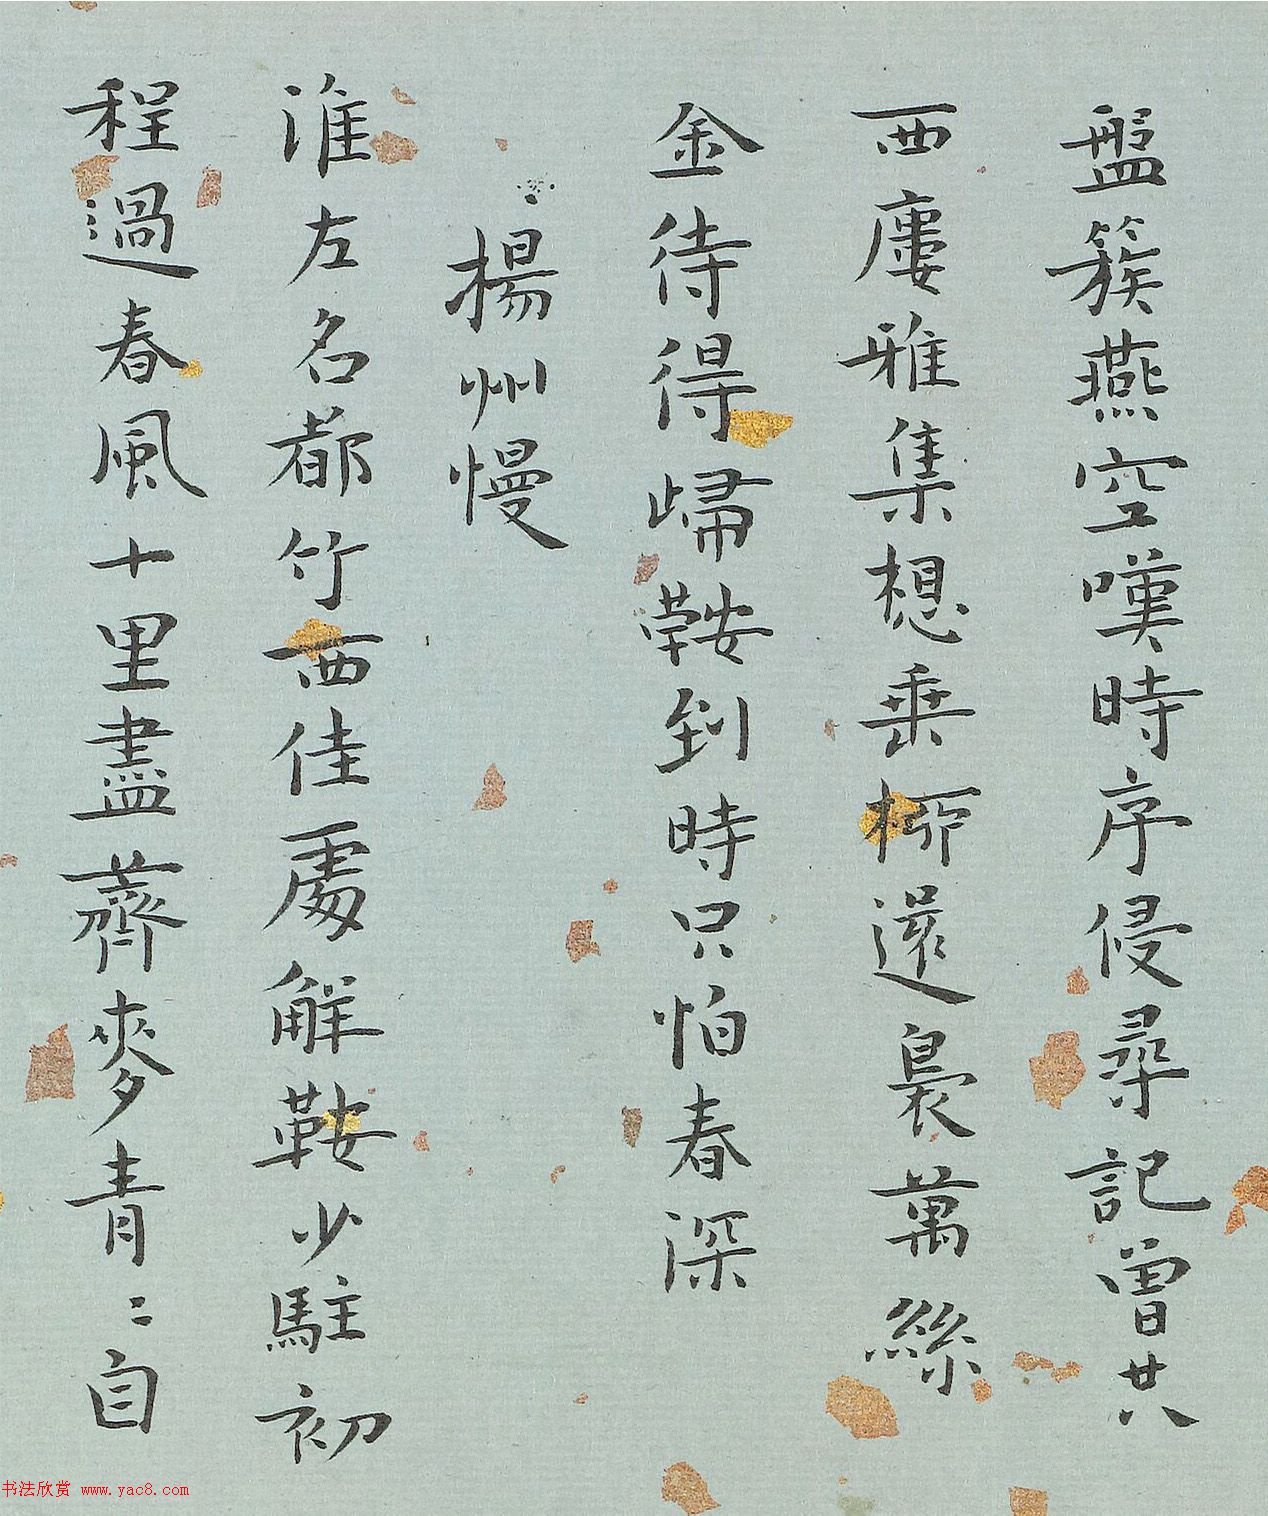 盤簇燕空嘆時序侵尋記曾共
西廔雅集想垂柳還裊萬絲
金待得歸鞍到時只怕春深
揚州慢
淮左名都竹西佳處解鞍少駐初
程過春風十里盡薺麥青〻自
书法欣赏 www.yac8.com